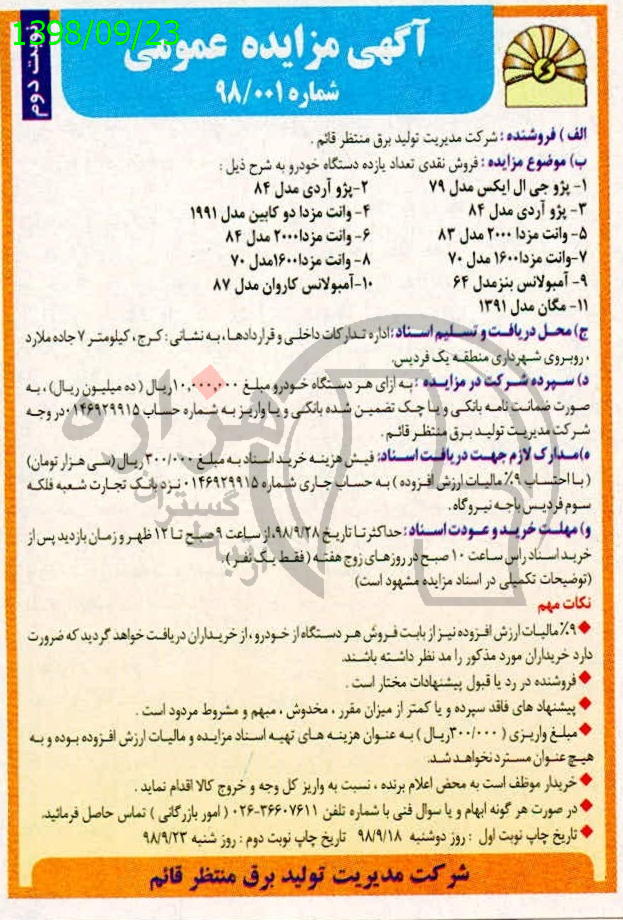 1398/09/23
نوبت دوم
آگهی مزایده عمومی
شماره ۹۸/۰۰۱
الف ) فروشنده : شرکت مدیریت تولید برق منتظر قائم .
ب) موضوع مزایده : فروش نقدی تعداد یازده دستگاه خودرو به شرح ذیل :
۱- پژو جی ال ایکس مدل ۷۹ ۲-پژو آردی مدل ۸۴
۳- پژو آردی مدل ۸۴ ۴- وانت مزدا دو کابین مدل ۱۹۹۱
۵- وانت مزدا ۲۰۰۰ مدل ۸۳ ۶- وانت مزدا۲۰۰۰ مدل ۸۴
۷-وانت مزدا۱۶۰۰ مدل ۷۰ ۸- وانت مزدا۱۶۰۰مدل ۷۰
۹- آمبولانس بنزمدل ۶۴ ۱۰-آمبولانس کاروان مدل ۸۷
۱۱- مگان مدل ۱۳۹۱
ج) محل دریافت و تسلیم اسناد :اداره تدارکات داخلی و قراردادها ، به نشانی : کرج ، کیلومتر ۷ جاده ملارد
، روبروی شهرداری منطقه یک فردیس.
د) سپرده شرکت در مزایده : به ازای هر دستگاه خودرو مبلغ ۱۰,۰۰۰,۰۰۰ریال ( ده میلیون ریال) ، به
صورت ضمانت نامه بانکی و یا چک تضمین شده بانکی و یا واریز به شماره حساب ۰۱۴۶۹۲۹۹۱۵در وجه
شرکت مدیریت تولید برق منتظر قائم .
ه)مدارک لازم جهت دریافت اسناد: فیش هزینه خرید اسناد به مبلغ ۳۰۰/۰۰۰ریال (سی هزار تومان)
( با احتساب ۹٪ مالیات ارزش افزوده ) به حساب جاری شماره ۰۱۴۶۹۲۹۹۱۵ نزد بانک تجارت شعبه فلکه
سوم فردیس باجه نیروگاه .
و) مهلت خرید و عودت اسناد : حداکثر تا تاریخ ۹۸/۹/۲۸،از ساعت ۹ صبح تا ۱۲ ظهر و زمان بازدید پس از
خرید اسناد راس ساعت ۱۰ صبح در روزهای زوج هفته ( فقط یک نفر) .
(توضیحات تکمیلی در اسناد مزایده مشهود است)
نکات مهم
◆۹٪ مالیات ارزش افزوده نیز از بابت فروش هر دستگاه از خودرو ، از خریداران دریافت خواهد گردید که ضرورت
دارد خریداران مورد مذکور را مد نظر داشته باشند.
◆فروشنده در رد یا قبول پیشنهادات مختار است .
◆ پیشنهاد های فاقد سپرده و یا کمتر از میزان مقرر ، مخدوش ، مبهم و مشروط مردود است .
◆مبلغ واریزی ( ۳۰۰/۰۰۰ریال ) به عنوان هزینه های تهیه اسناد مزایده و مالیات ارزش افزوده بوده و به
هیچ عنوان مسترد نخواهد شد.
◆خریدار موظف است به محض اعلام برنده ، نسبت به واریز کل وجه و خروج کالا اقدام نماید .
◆در صورت هر گونه ابهام و یا سوال فنی با شماره تلفن ۳۶۶۰۷۶۱۱-۰۲۶ ( امور بازرگانی ) تماس حاصل فرمائید.
◆ تاریخ چاپ نوبت اول : روز دوشنبه ۹۸/۹/۱۸ تاریخ چاپ نوبت دوم : روز شنبه ۹۸/۹/۲۳
شرکت مدیریت تولید برق منتظر قائم
هزاره